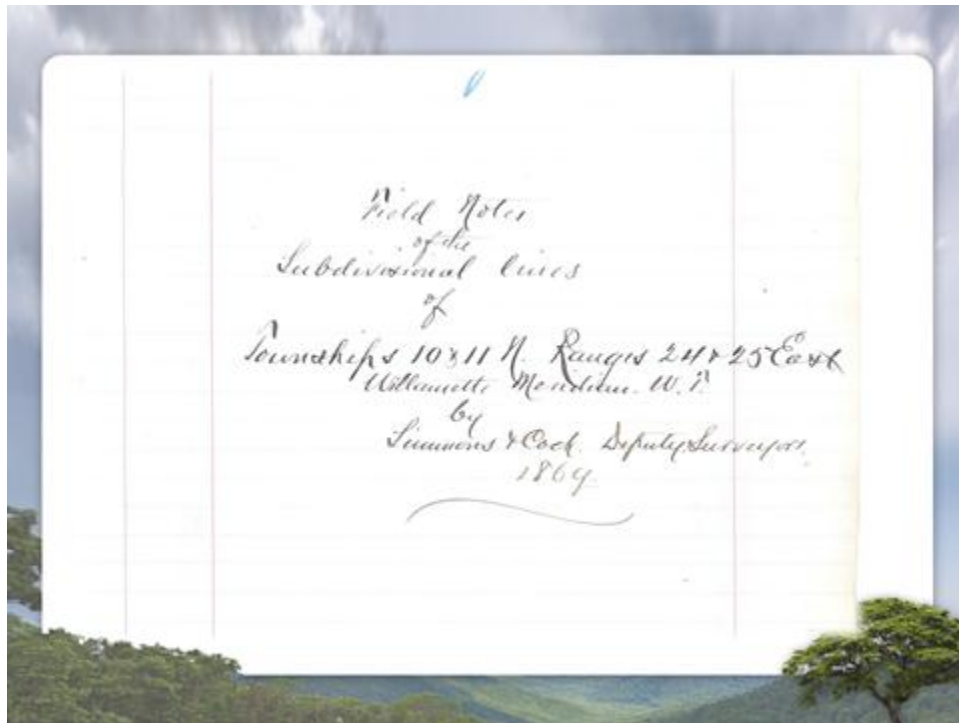 Field Notes
of the
Subdivisional lines
of
Townships 10 & 11 N. Ranges 24 & 25 East
Willamette Meridian. W. T.
by
Simmons & Deputy Surveyors.